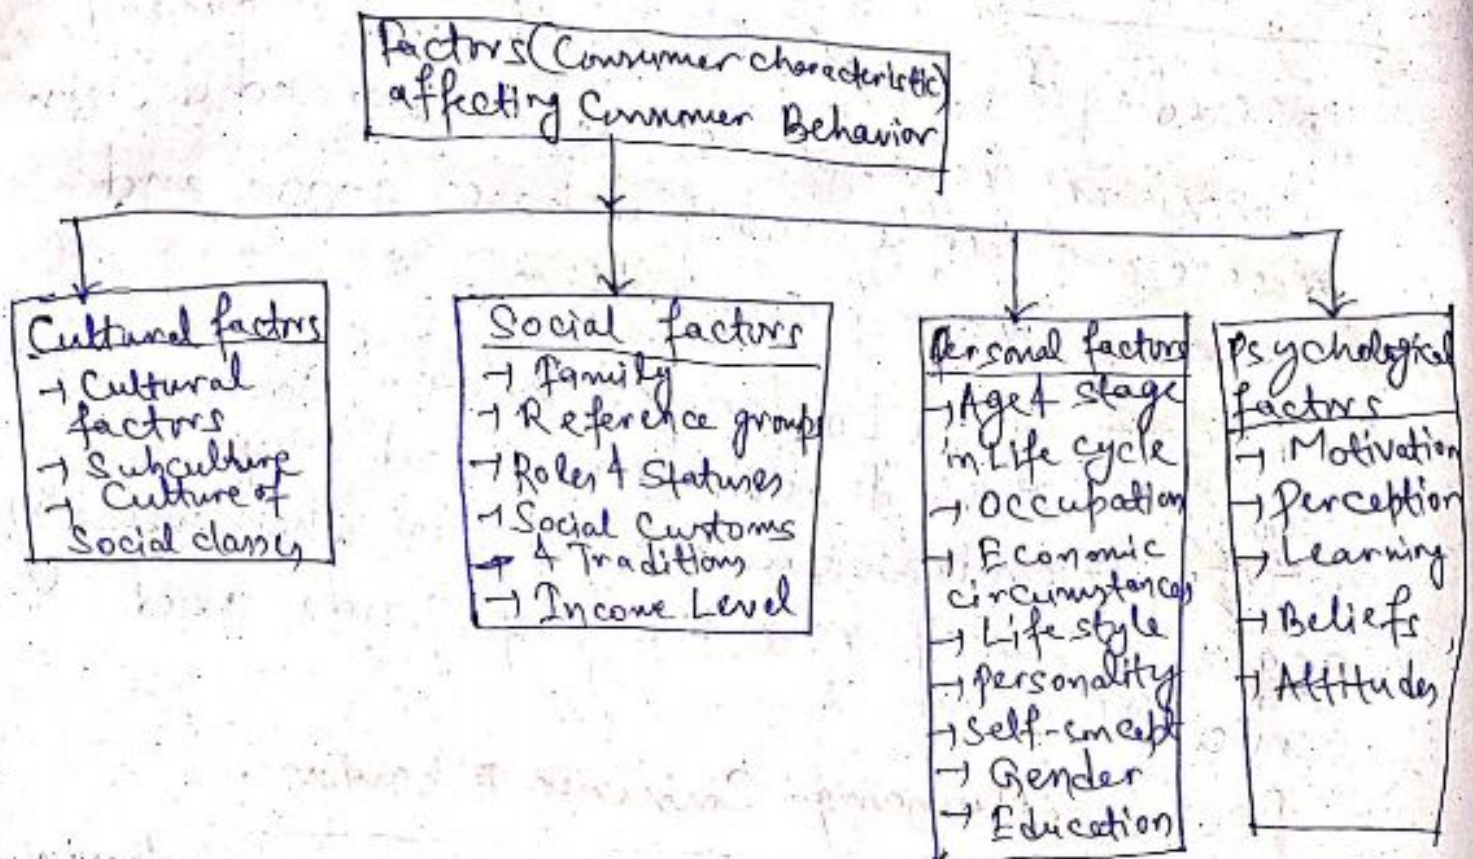 Factors (Consumer characteristic)
affecting Consumer Behavior
Cultural factors
→ Cultural
factors
→ Subculture
→ Culture of
Social classes
Social factors
→ Family
→ Reference groups
→ Roles & Statuses
→ Social Customs
→ & Traditions
→ Income Level
Personal factors
→ Age & stage
in Life cycle
→ Occupation
→ Economic
circumstances
→ Life style
→ personality
→ Self-concept
→ Gender
→ Education
Psychological
factors
→ Motivation
→ Perception
→ Learning
→ Beliefs
→ Attitudes